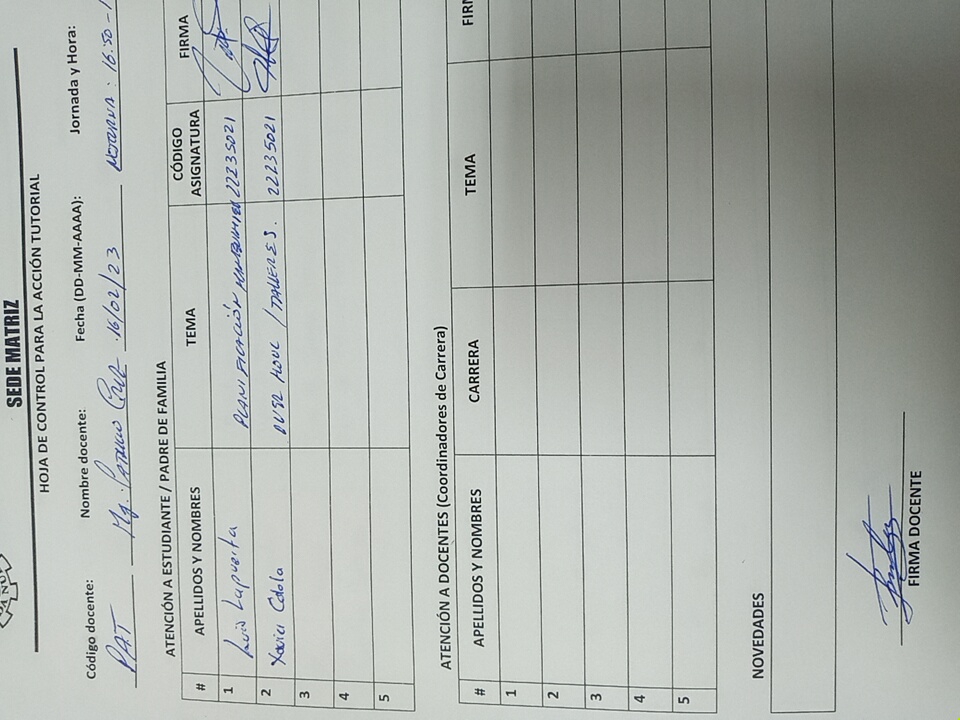 SEDE MATRIZ
HOJA DE CONTROL PARA LA ACCIÓN TUTORIAL
Código docente: Nombre docente: Fecha (DD-MM-AAAA): Jornada y Hora:
PAT Mg. Patricio Cruz 16/02/23 NOCTURNA: 16:50 -
ATENCIÓN A ESTUDIANTE / PADRE DE FAMILIA
# APELLIDOS Y NOMBRES TEMA CÓDIGO ASIGNATURA FIRMA
1 Luis Lapuerta PLANIFICACIÓN 22235021
2 Xavier Cdola / TALLERES. 22235021
3
4
5
ATENCIÓN A DOCENTES (Coordinadores de Carrera)
# APELLIDOS Y NOMBRES CARRERA TEMA FIR
1
2
3
4
5
NOVEDADES
FIRMA DOCENTE